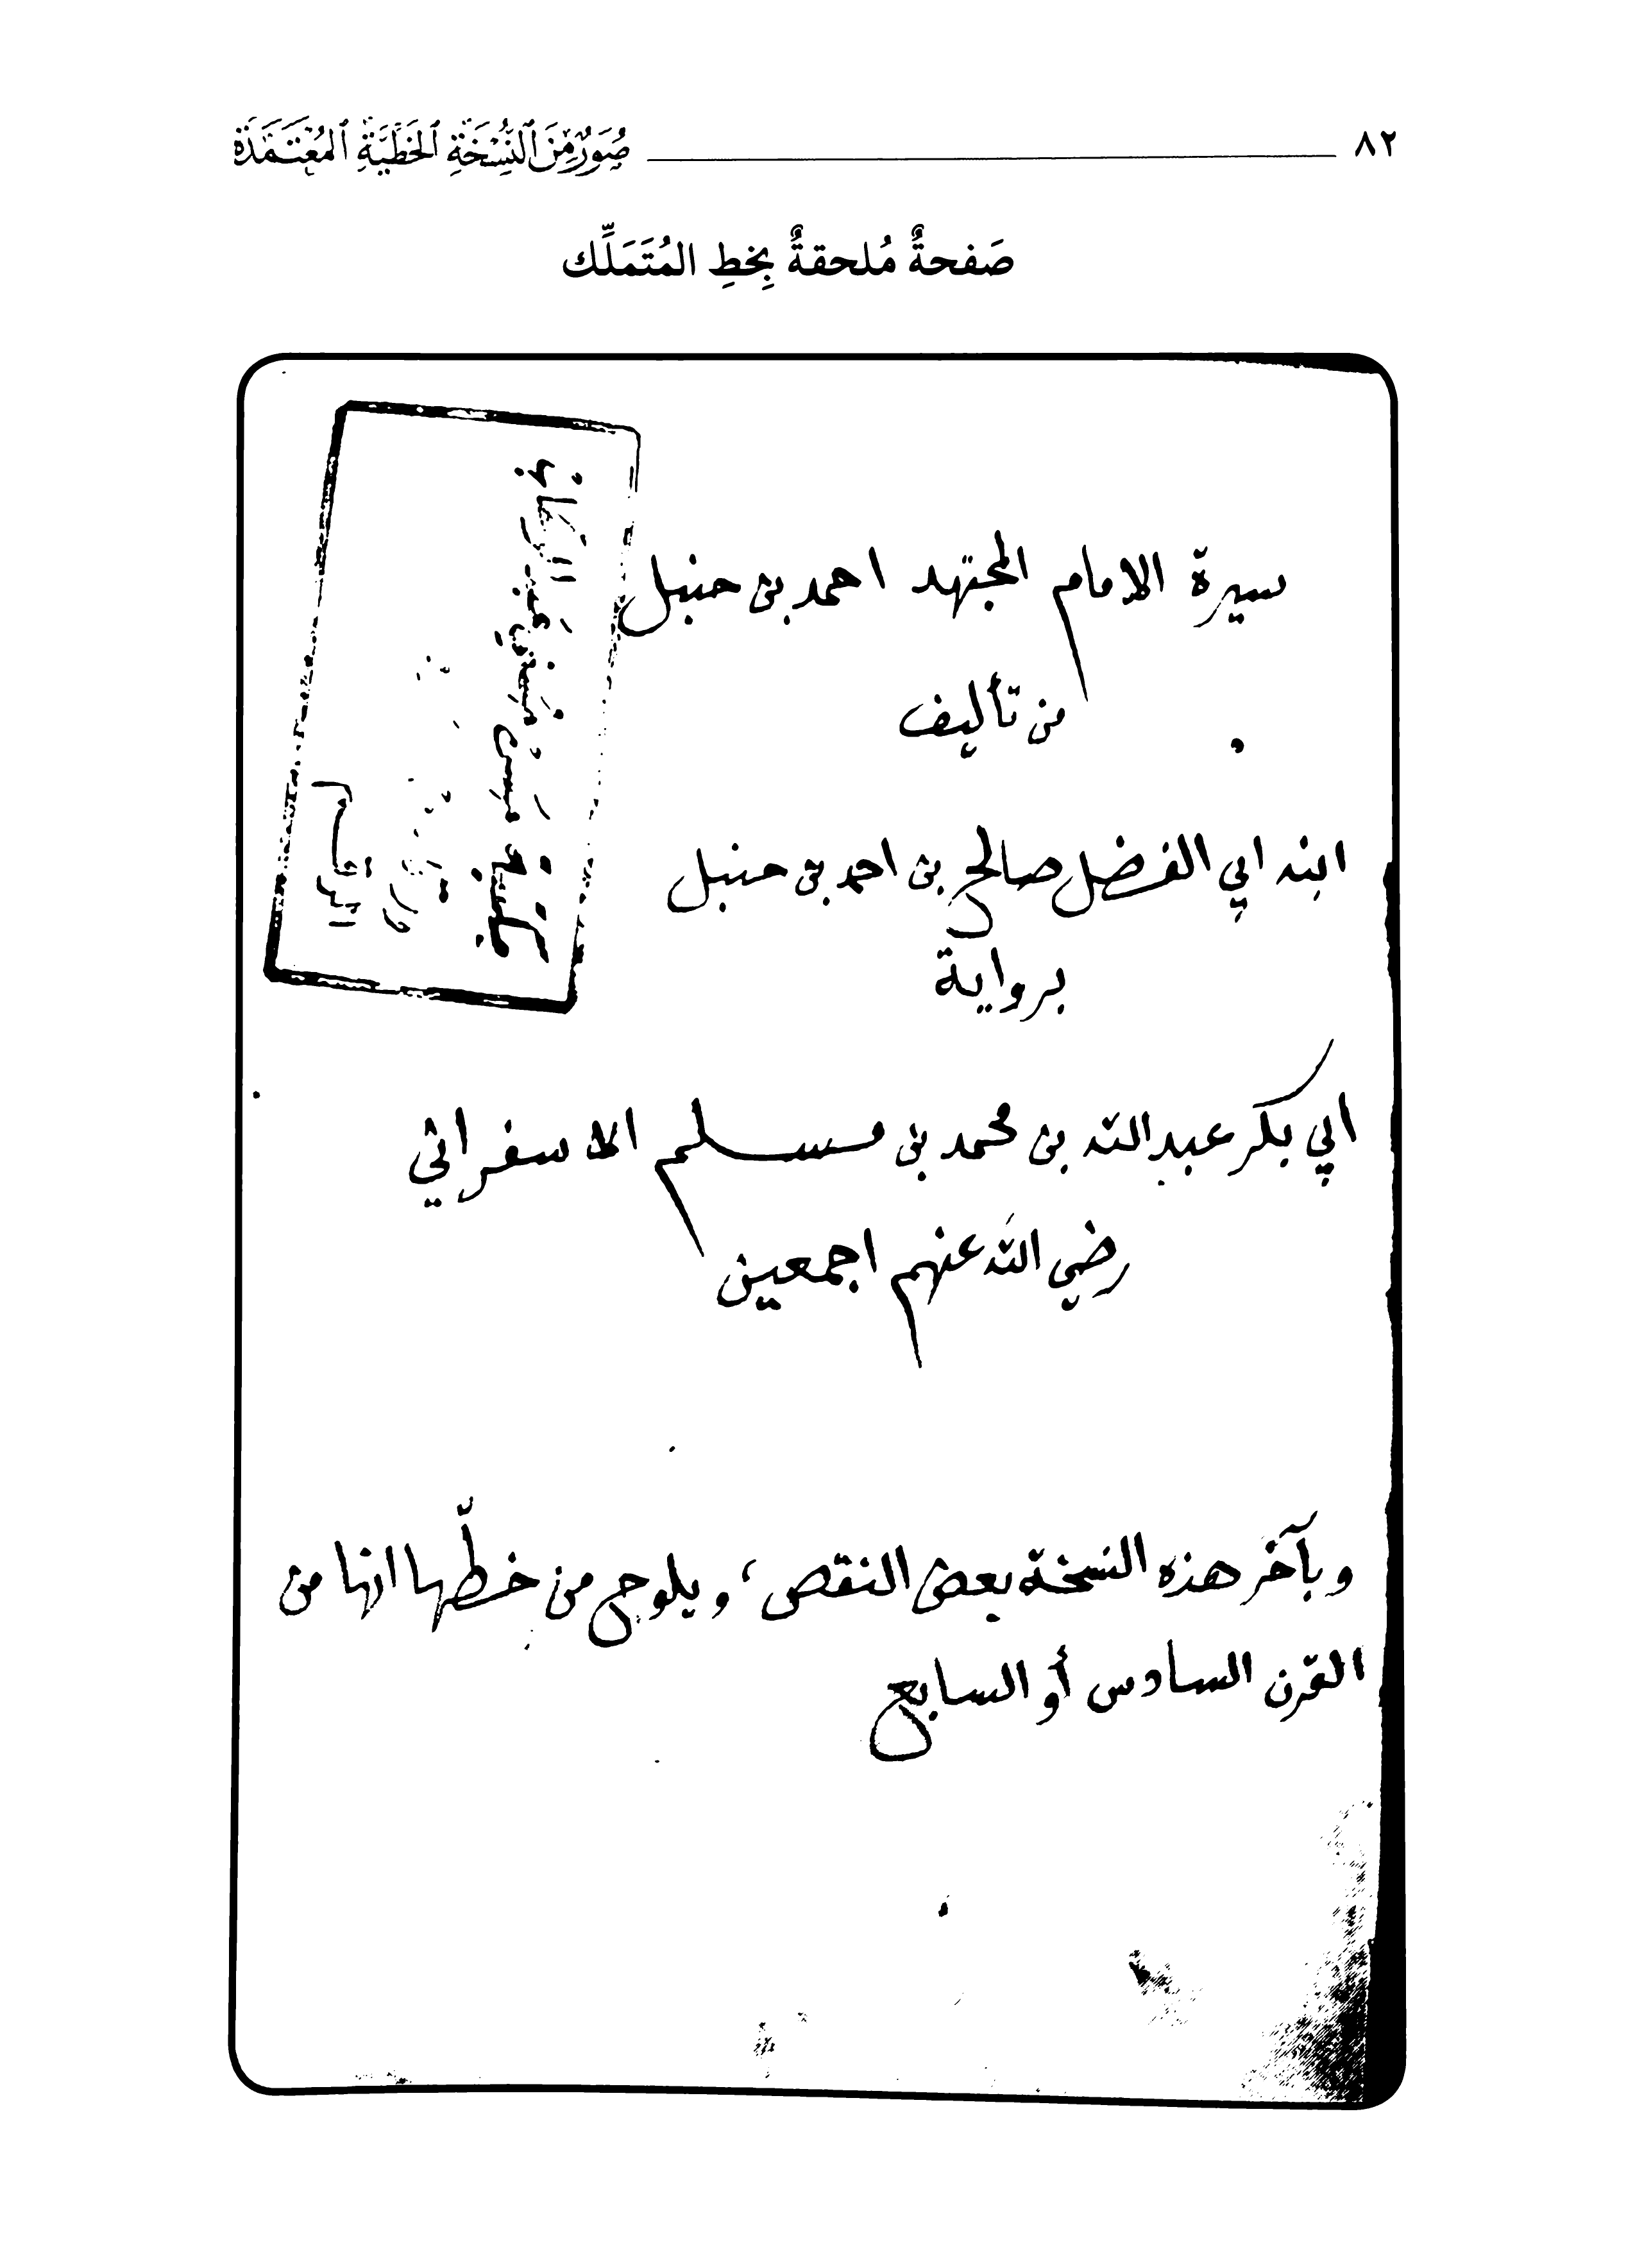 ٨٢ صُوَرٌ مِنَ النُّسْخَةِ الخَطِّيَّةِ المُعْتَمَدَة
صَفحةٌ مُلحقةٌ بِخطِ المُتَمَلِّك
سيرة الامام المجتهد احمد بن حنبل
من تأليف
ابنه ابي الفضل صالح بن احمد بن حنبل
برواية
ابي بكر عبد الله بن محمد بن مسلم الاسفرائي
رضي الله عنهم اجمعين
وبآخر هذه النسخة بعض النقص، ويلوح من خطّها انها من
القرن السادس أو السابع